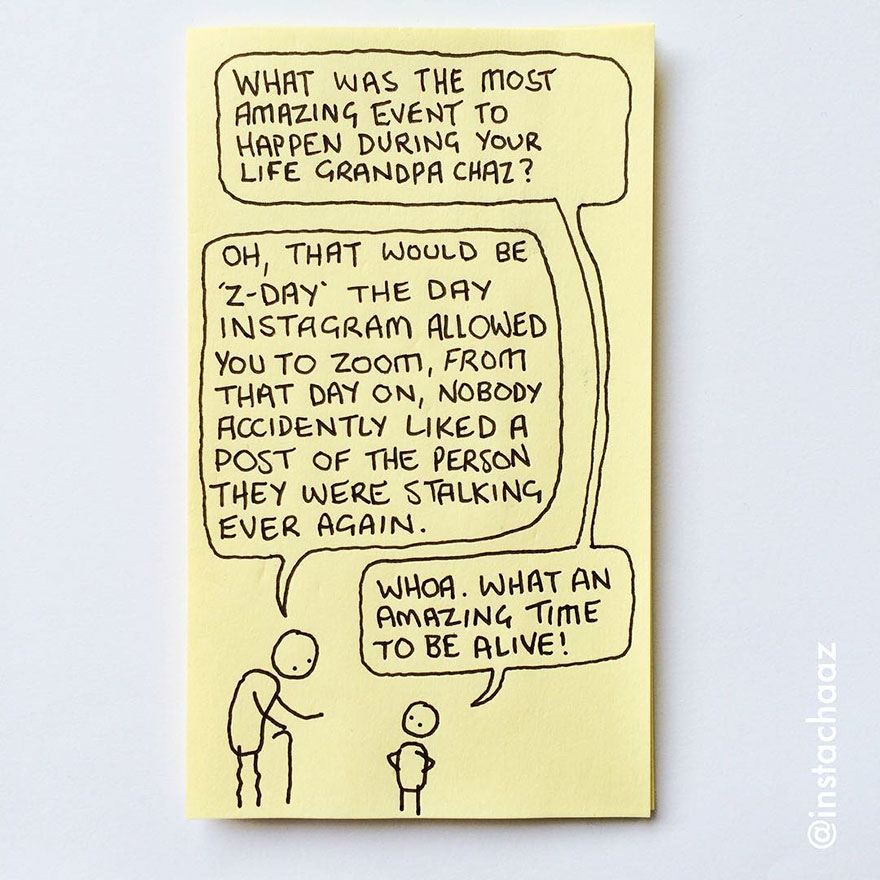 WHAT WAS THE MOST
AMAZING EVENT TO
HAPPEN DURING YOUR
LIFE GRANDPA CHAZ?
OH, THAT WOULD BE
'Z-DAY' THE DAY
INSTAGRAM ALLOWED
YOU TO ZOOM, FROM
THAT DAY ON, NOBODY
ACCIDENTLY LIKED A
POST OF THE PERSON
THEY WERE STALKING
EVER AGAIN.
WHOA. WHAT AN
AMAZING TIME
TO BE ALIVE!
@instachaaz